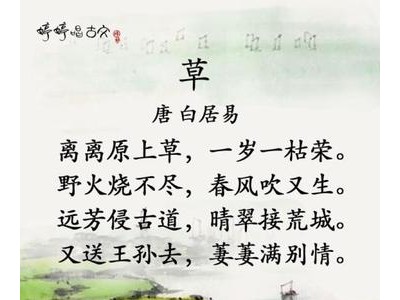 婷婷唱古文
草
唐 白居易
离离原上草，一岁一枯荣。
野火烧不尽，春风吹又生。
远芳侵古道，晴翠接荒城。
又送王孙去，萋萋满别情。